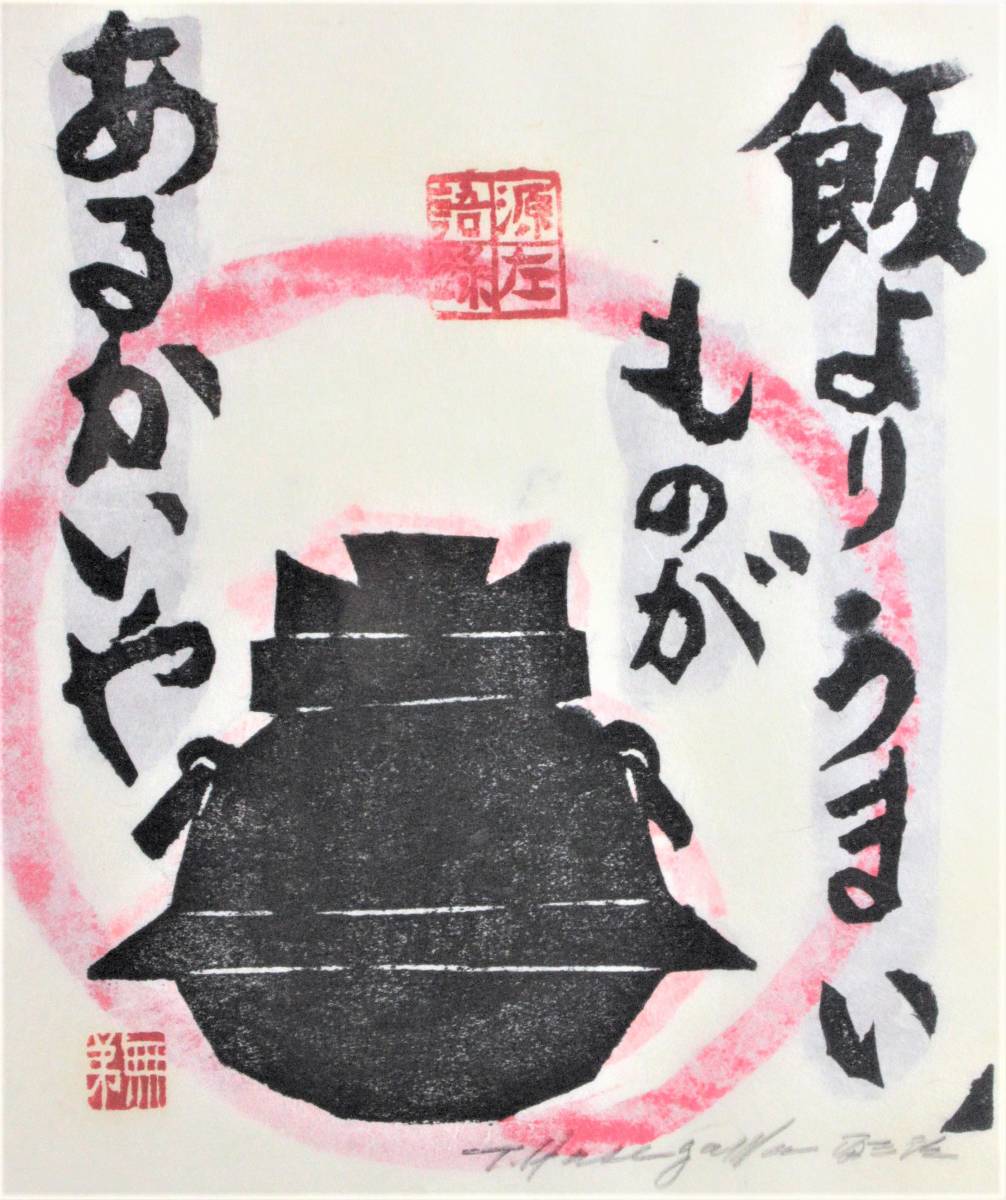 飯よりうまい
ものが
あるかいや
源左
語録
T. Hasegawa
無
弟